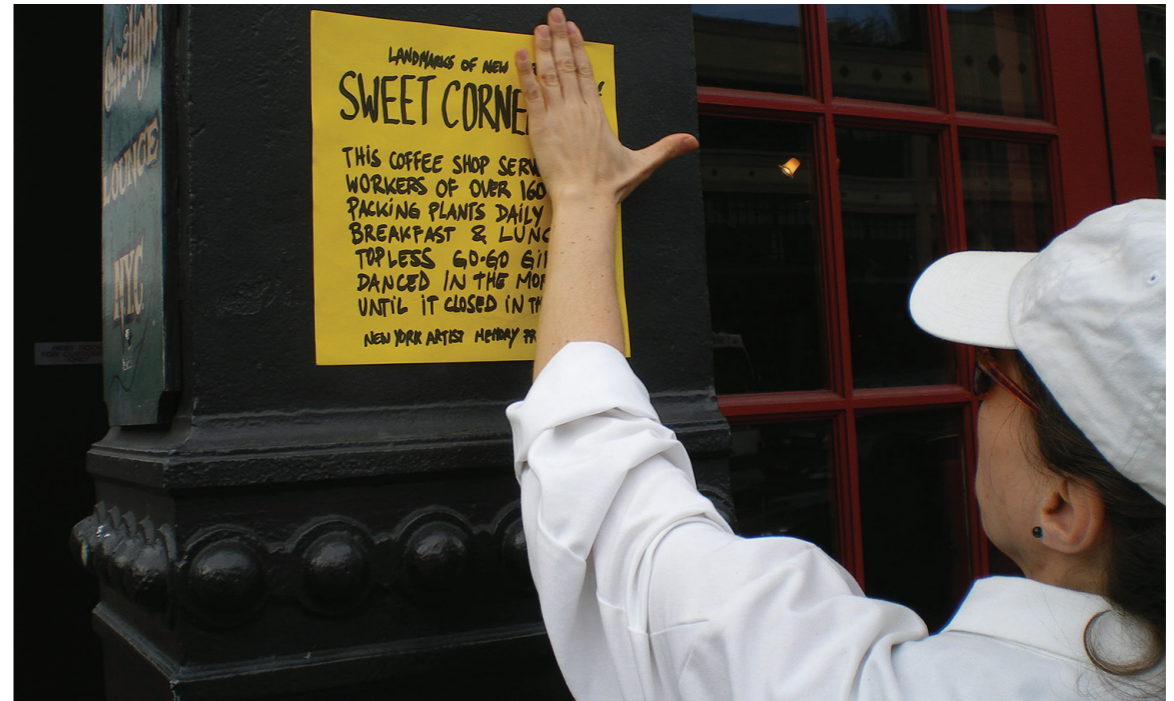 LOUNGE
NYC
LANDMARKS OF NEW
SWEET CORNE
THIS COFFEE SHOP SERV
WORKERS OF OVER 160
PACKING PLANTS DAILY
BREAKFAST & LUNC
TOPLESS GO-GO GI
DANCED IN THE MOR
UNTIL IT CLOSED IN TH
NEW YORK ARTIST MEMORY PR